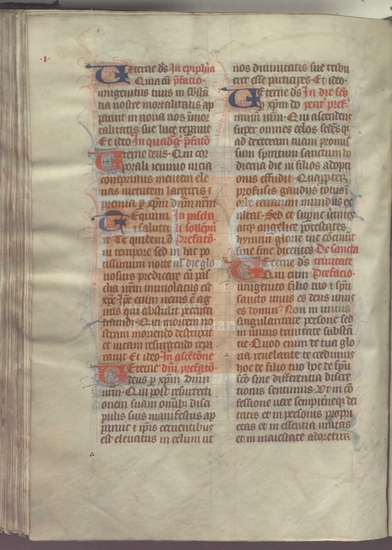 Eterne ds In epiphia
Quia cu p̄facio
unigenitus tuus in sbsta
tia nostre mortalitatis ap
paruit in nova nos imor
talitatis sue luce repavit
Et ideo In quadg̃ p̃facio
Eterne deus Qui cor
porali ieiunio vicia
comprimis mentem ele
vas virtutem largiris i
premia p xpm dnm nrm
Equum In pascha
salutare
Te quidem Prefacio
in tempore sed in hac po
tissimum nocte ul die glo
riosius predicare cū pas
cha nrm immolatus est
xpc Ipse enim verus ē ag
nus qui abstulit peccata
mundi Qui mortem no
stram moriendo destruxit
et vitam resurgendo repa
ravit Et ideo In ascensione
Eterne dni prefacio
deus p xpm dnm
nrm Qui post resurrecti
onem suam omnibus disci
pulis suis manifestus ap
paruit et ipis cernentibus
est elevatus in celum ut
nos divinitatis sue tribu
eret esse participes Et ideo
Eterne ds In die sco
p xpm do pent pref
minum nrm Qui ascendens
super omnes celos sedensq
ad dexteram tuam promis
sum spiritum sanctum ho
dierna die in filios adopti
onis effudit Quapropter
profusis gaudijs totus i
orbe terrarum mundus ex
ultat Sed et superne virtu
tes atq angelice potestates
hymnū glorie tue concinūt
sine fine dicentes De sancta
Eterne ds trinitate
Qui cum Prefacio
unigenito filio tuo et spū
sancto unus es deus unus
es dominus Non in unius
singularitate persone sed
in unius trinitate substan
tie Quod enim de tua glo
ria revelante te credimus
hoc de filio tuo hoc de spū
sco sine differentia discre
cionis sentimus Ut in co
fessione vere sempiterneq dei
tatis et in personis propri
etas et in essentia unitas
et in maiestate adoretur